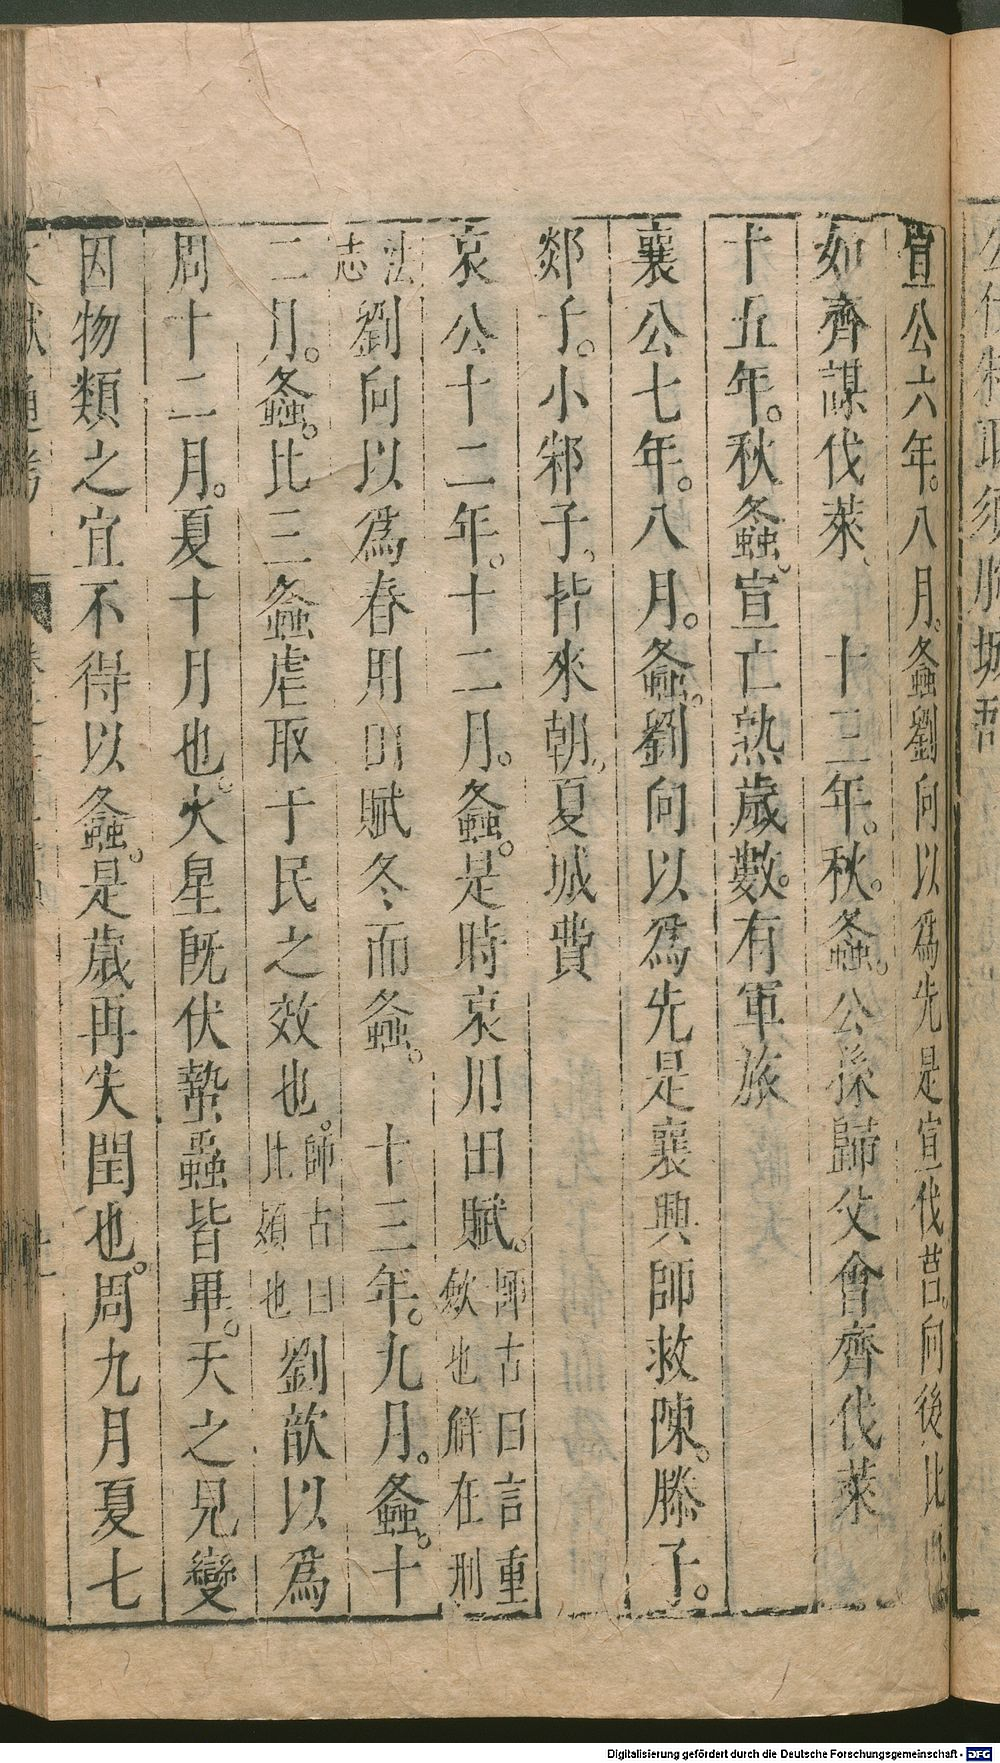 宣公六年。八月。螽劉向以爲先是宣伐莒。向後比
如齊謀伐萊、　十三年。秋。螽。公孫歸父會齊伐萊
十五年。秋螽。宣亡熟歲數。有軍旅
襄公七年。八月。螽。劉向以爲先是襄興師救陳。滕子。
郯子。小邾子。皆來朝。夏城費
哀公十二年。十二月。螽。是時哀用田賦。師古曰言重
斂也解在刑
法志劉向以爲春用田賦冬而螽。　十三年。九月。螽。十
二月。螽。比三螽虐取于民之效也。師古曰比頻也劉歆以爲
周十二月。夏十月也。火星旣伏蟄蟲皆畢。天之見變
因物類之宜不得以螽。是歲再失閏也。周九月夏七
Digitalisierung gefördert durch die Deutsche Forschungsgemeinschaft - DFG